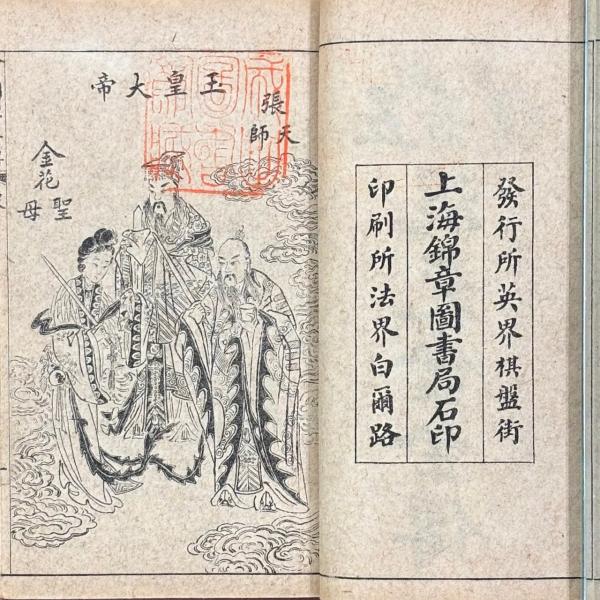 發行所英界棋盤街
上海錦章圖書局石印
印刷所法界白爾路
玉皇大帝
張天師
金花聖母